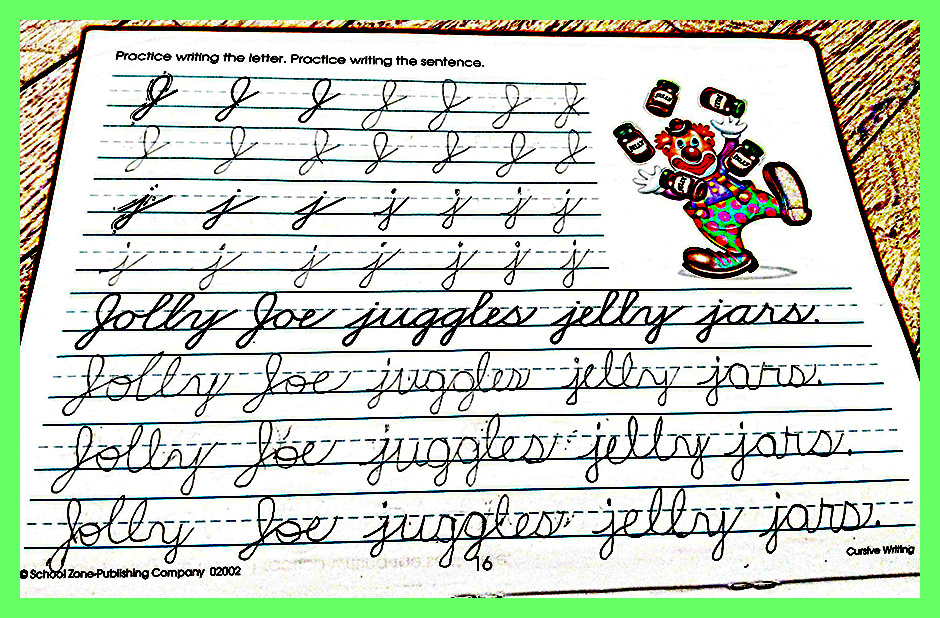 Practice writing the letter. Practice writing the sentence.
J J J J J J J
J J J J J J J
j j j j j j j
j j j j j j j
Jolly Joe juggles jelly jars.
Jolly Joe juggles jelly jars.
Jolly Joe juggles jelly jars.
Jolly Joe juggles jelly jars.
JELLY
JELLY
JELLY
JELLY
JELLY
Cursive Writing
16
© School Zone Publishing Company 02002